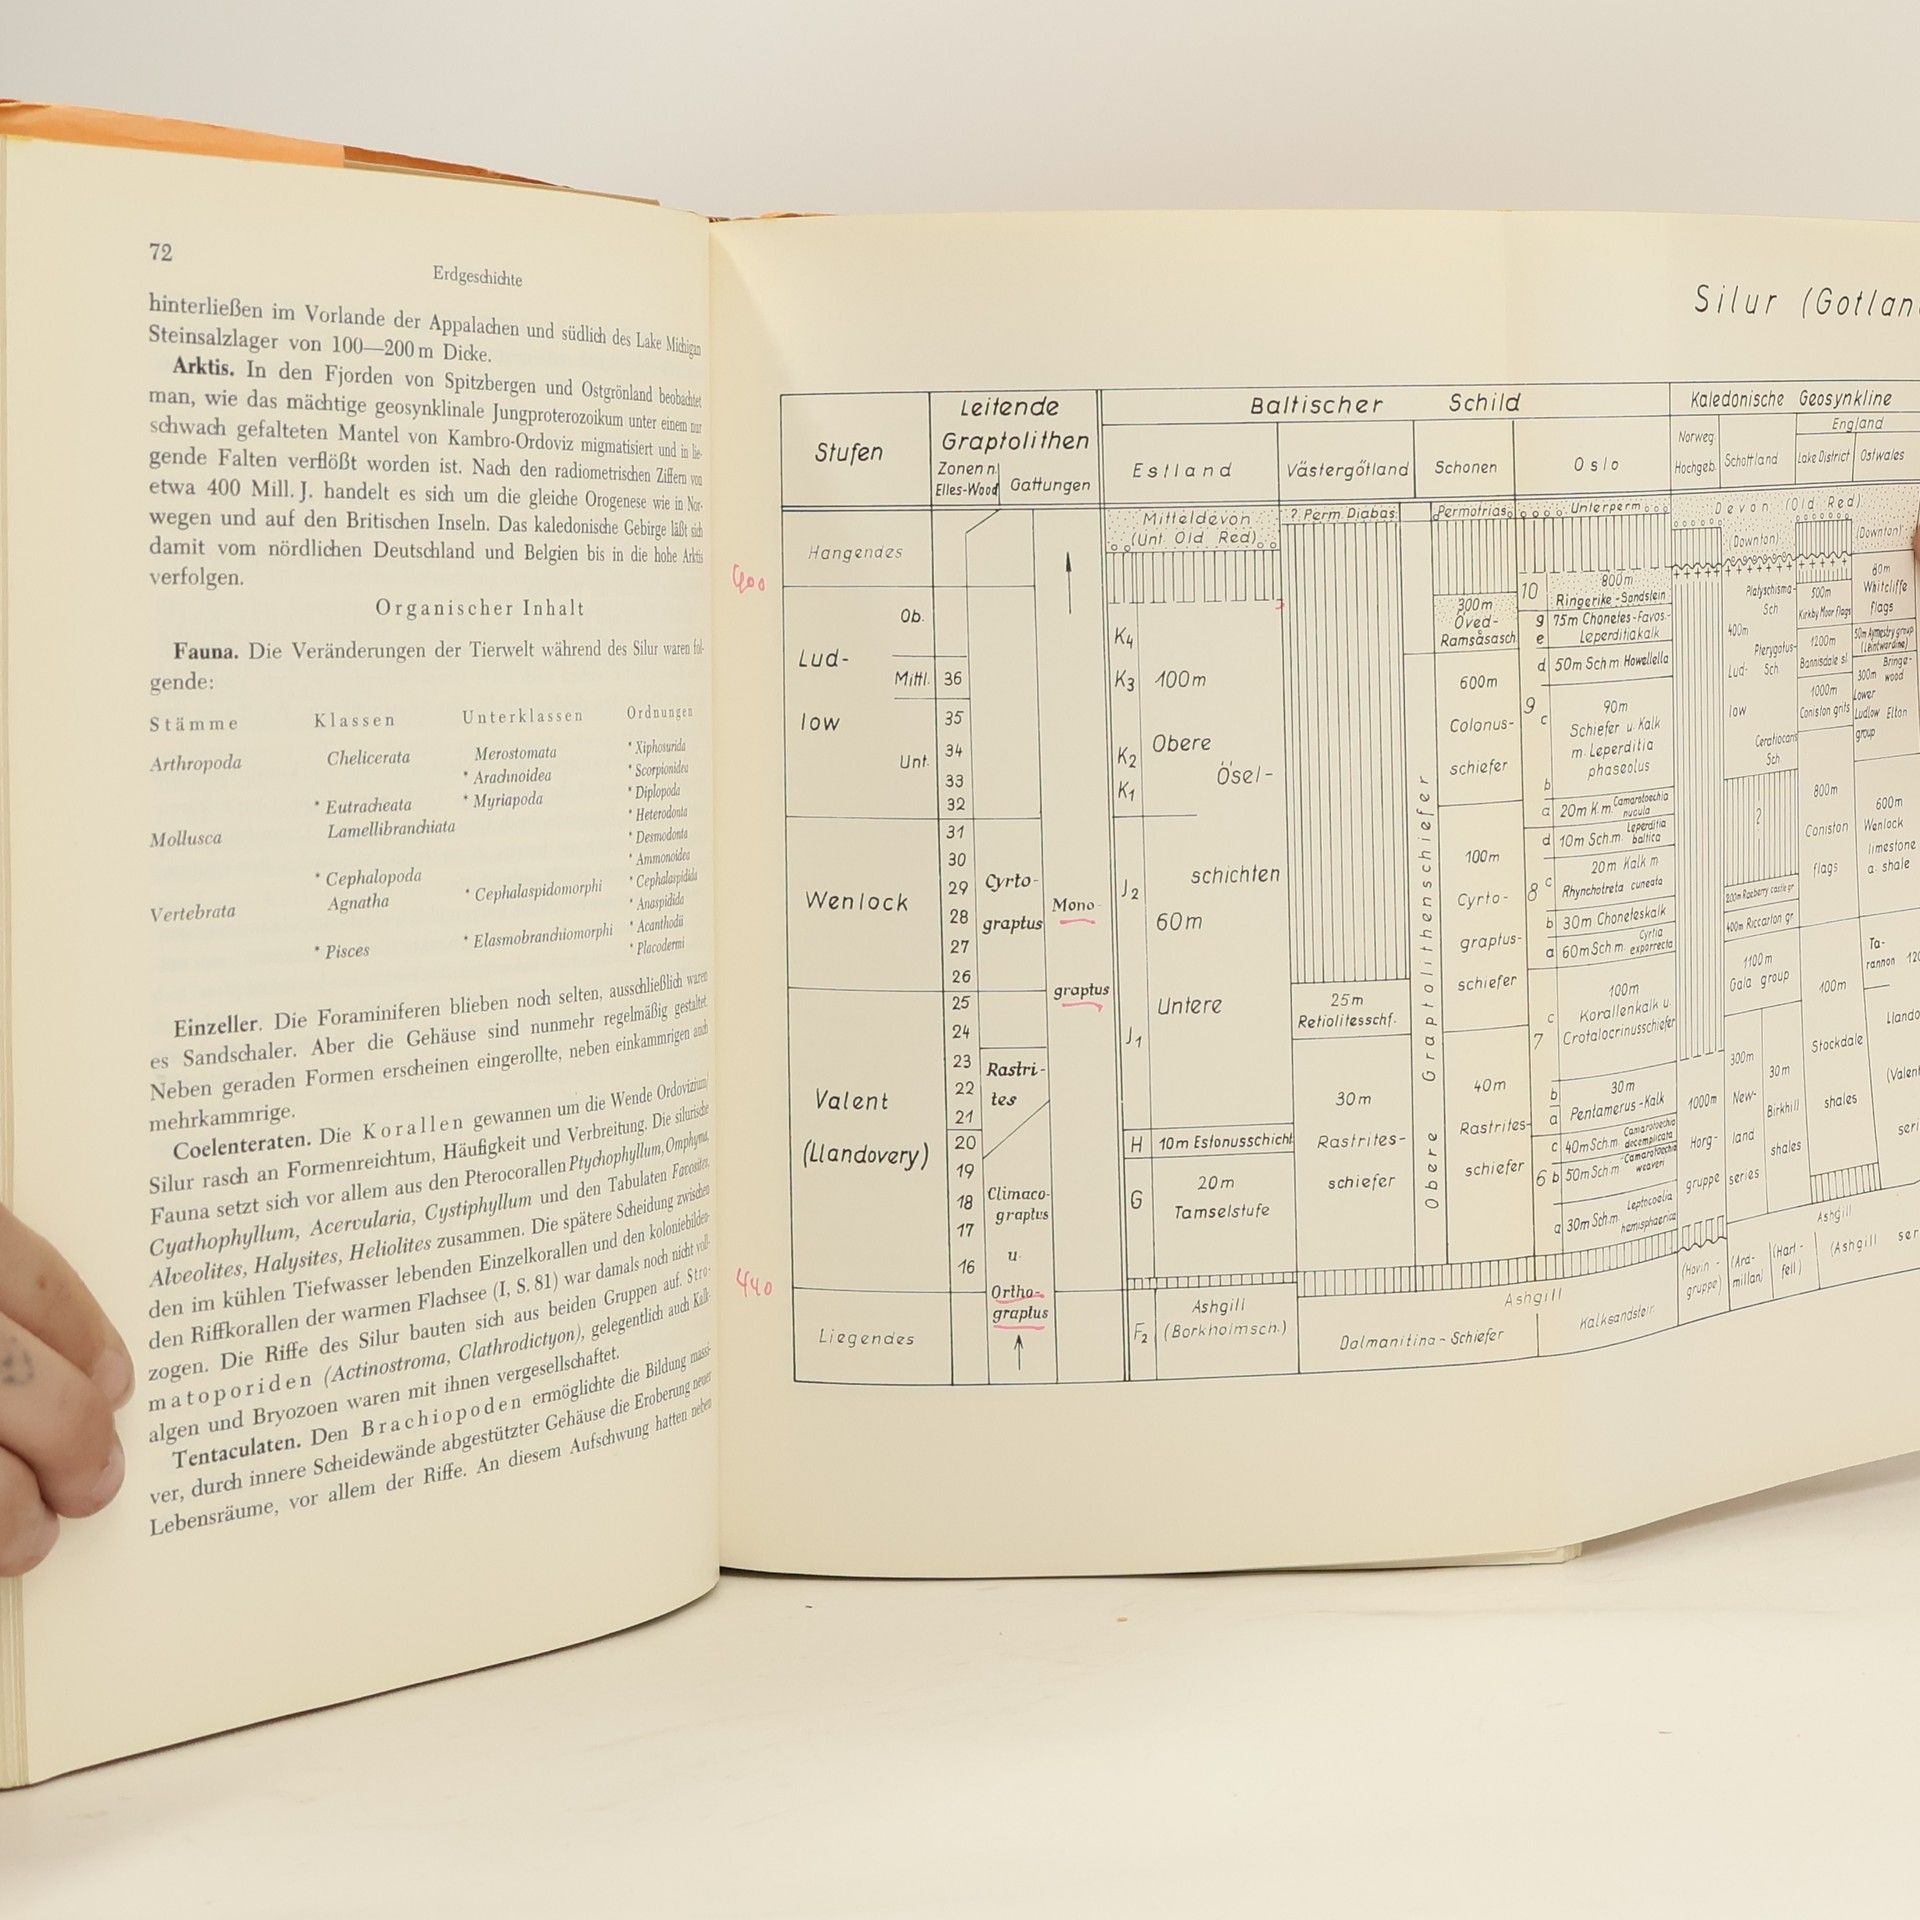 72
Erdgeschichte
hinterließen im Vorlande der Appalachen und südlich des Lake Michigan
Steinsalzlager von 100—200 m Dicke.
Arktis. In den Fjorden von Spitzbergen und Ostgrönland beobachtet
man, wie das mächtige geosynklinale Jungproterozoikum unter einem nur
schwach gefalteten Mantel von Kambro-Ordoviz migmatisiert und in lie-
gende Falten verflößt worden ist. Nach den radiometrischen Ziffern von
etwa 400 Mill. J. handelt es sich um die gleiche Orogenese wie in Nor-
wegen und auf den Britischen Inseln. Das kaledonische Gebirge läßt sich
damit vom nördlichen Deutschland und Belgien bis in die hohe Arktis
verfolgen.
Organischer Inhalt
Fauna. Die Veränderungen der Tierwelt während des Silur waren fol-
gende:
Stämme Klassen Unterklassen Ordnungen
Arthropoda Chelicerata Merostomata * Xiphosurida
* Arachnoidea * Scorpionidea
* Eutracheata * Myriapoda * Diplopoda
Mollusca Lamellibranchiata * Heterodonta
* Desmodonta
* Cephalopoda * Ammonoidea
Vertebrata Agnatha * Cephalaspidomorphi * Cephalaspidida
* Anaspidida
* Pisces * Elasmobranchiomorphi * Acanthodii
* Placodermi
Einzeller. Die Foraminiferen blieben noch selten, ausschließlich waren
es Sandschaler. Aber die Gehäuse sind nunmehr regelmäßig gestaltet.
Neben geraden Formen erscheinen eingerollte, neben einkammrigen auch
mehrkammrige.
Coelenteraten. Die Korallen gewannen um die Wende Ordovizium/
Silur rasch an Formenreichtum, Häufigkeit und Verbreitung. Die silurische
Fauna setzt sich vor allem aus den Pterocorallen Ptychophyllum, Omphyma,
Cyathophyllum, Acervularia, Cystiphyllum und den Tabulaten Favosites,
Alveolites, Halysites, Heliolites zusammen. Die spätere Scheidung zwischen
den im kühlen Tiefwasser lebenden Einzelkorallen und den koloniebilden-
den Riffkorallen der warmen Flachsee (I, S. 81) war damals noch nicht voll-
zogen. Die Riffe des Silur bauten sich aus beiden Gruppen auf. Stro-
matoporiden (Actinostroma, Clathrodictyon), gelegentlich auch Kalk-
algen und Bryozoen waren mit ihnen vergesellschaftet.
Tentaculaten. Den Brachiopoden ermöglichte die Bildung massi-
ver, durch innere Scheidewände abgestützter Gehäuse die Eroberung neuer
Lebensräume, vor allem der Riffe. An diesem Aufschwung hatten neben
Silur (Gotlan
Stufen
Leitende
Graptolithen
Zonen n.
Elles-Wood
Gattungen
Baltischer Schild
Estland
Västergötland
Schonen
Oslo
Kaledonische Geosynkline
Norweg.
Hochgeb.
Schottland
England
Lake District
Ostwales
Hangendes
400
Lud-
low
Ob.
Mittl.
Unt.
Wenlock
Valent
(Llandovery)
440
Liegendes
36
35
34
33
32
31
30
29
28
27
26
25
24
23
22
21
20
19
18
17
16
Cyrto-
graptus
Rastri-
tes
Climaco-
graptus
u.
Ortho-
graptus
Mono-
graptus
Mitteldevon
(Unt. Old Red)
K4
K3
K2
K1
J2
J1
H
G
F2
100m
Obere
Ösel-
schichten
60m
Untere
10m Estonusschicht
20m
Tamselstufe
Ashgill
(Borkholmsch.)
? Perm Diabas
25m
Retiolitesschf.
30m
Rastrites-
schiefer
Obere Graptolithenschiefer
Permotrias
300m
Öved-
Ramsåsasch
600m
Colonus-
schiefer
100m
Cyrto-
graptus-
schiefer
40m
Rastrites-
schiefer
Dalmanitina-Schiefer
Ashgill
Kalksandstein
Unterperm
10
800m
Ringerike-Sandstein
9
g
e
75m Chonetes-Favos.-
Leperditiakalk
d
50m Sch m Howellella
c
90m
Schiefer u. Kalk
m. Leperditia
phaseolus
b
a
20m K.m. Camarotoechia
nucula
8
d
10m Sch.m. Leperditia
baltica
c
20m Kalk m
Rhynchotreta cuneata
b
30m Choneteskalk
a
60m Sch m. Cyrtia
exporrecta
7
c
100m
Korallenkalk u
Crotalocrinusschiefer
b
a
30m
Pentamerus-Kalk
6
c
40m Sch m. Camarotoechia
decemplicata
b
50m Sch m Camarotoechia
weaveri
a
30m Sch m. Leptocoelia
hemisphaerica
Devon (Old Red)
1000m
Horg-
gruppe
(Hovin-
gruppe)
(Downton)
400m
Lud-
low
Platyschisma-
Sch
Pterygotus-
Sch.
Ceratiocaris
Sch
?
200m Raeberry castle gr
400m Riccarton gr
1100m
Gala group
300m
New-
land
series
30m
Birkhill
shales
(Ard-
millan)
(Hart-
fell)
500m
Kirkby Moor flags
1200m
Bannisdale sl
1000m
Coniston grits
800m
Coniston
flags
100m
Stockdale
shales
Ashgill
(Ashgill ser
(Downton)
80m
Whitcliffe
flags
50m Aymestry group
(Leintwardine)
300m Bringe-
wood
Lower
Ludlow Elton
group
600m
Wenlock
limestone
a. shale
Ta-
rannon 120
Llando
(Valent
seri